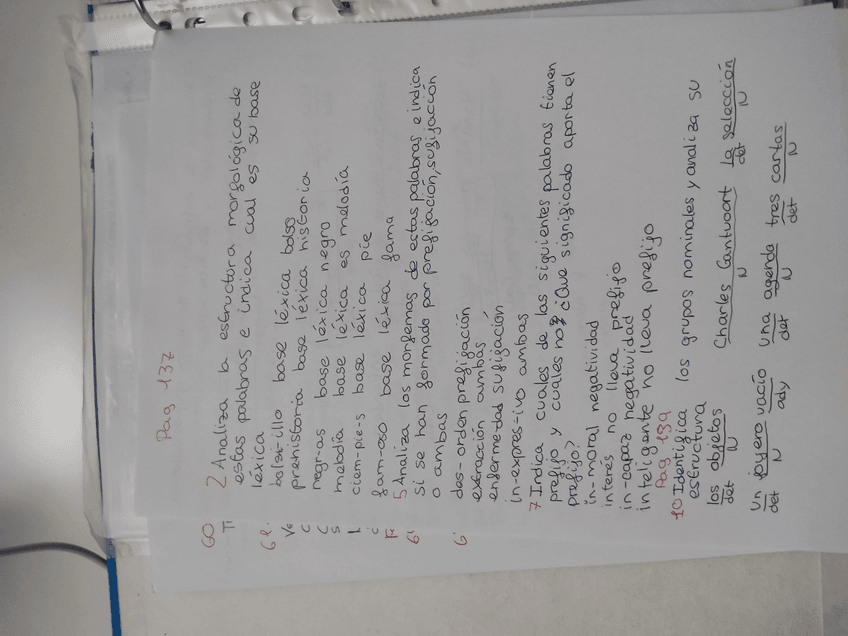 Pag 137
2 Analiza la estructura morfológica de
estas palabras e indica cual es su base
léxica
bolsi-illo base léxica bolso
prehistoria base léxica historia
negr-as base léxica negro
melodía base léxica es melodía
ciem-pie-s base léxica pie
fam-oso base léxica fama
5 Analiza los morfemas de estas palabras e indica
si se han formado por prefijación, sufijación
o ambas
des-orden prefijación
extracción ambas
enfermedad sufijación
in-expres-ivo ambas
7 Indica cuales de las siguientes palabras tienen
prefijo y cuales no ¿Que significado aporta el
prefijo?
in-moral negatividad
interés no lleva prefijo
in-capaz negatividad
inteligente no lleva prefijo
Pag 139
10 Identifica los grupos nominales y analiza su
estructura
los objetos Charles Gantwoort la selección
det N N det N
un joyero vacío una agenda tres cartas
det N ady det N det N
60
Ti
61.
Ve
C
C
S
L
C
F
6
6